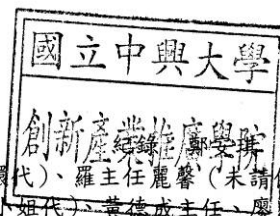 國立中興大學
創新產業推廣學院
紀錄：鄭安琪
代）、羅主任麗馨（未請
小姐代）、黃德成主任、廖